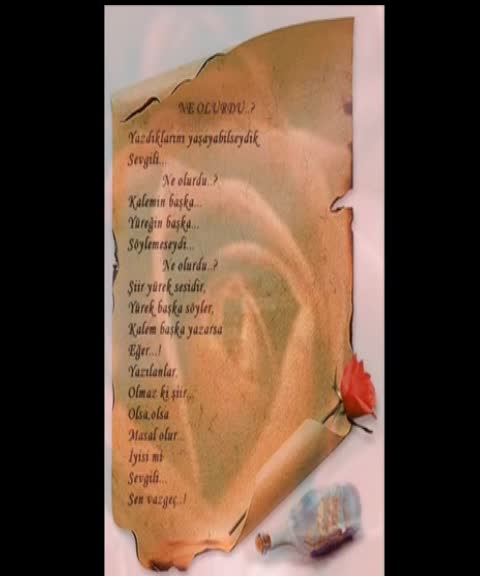 NE OLURDU..?
Yazdıklarını yaşayabilseydik
Sevgili...
Ne olurdu..?
Kalemin başka...
Yüreğin başka...
Söylemeseydi...
Ne olurdu..?
Şiir yürek sesidir,
Yürek başka söyler,
Kalem başka yazarsa
Eğer...!
Yazılanlar,
Olmaz ki şiir...
Olsa,olsa
Masal olur...
İyisi mi
Sevgili...
Sen vazgeç..!